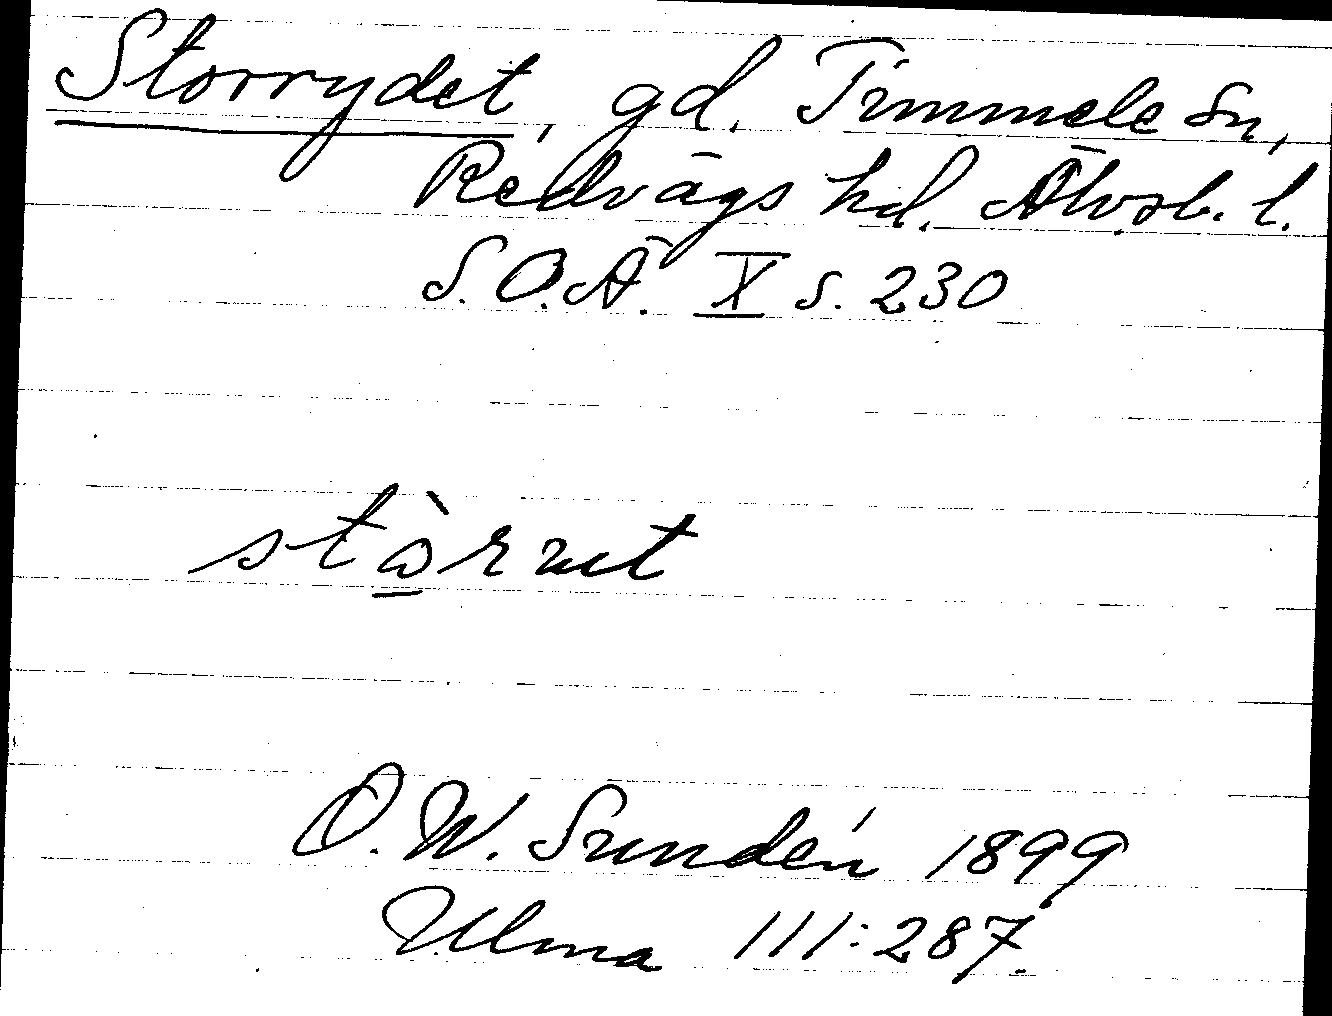 Storrydet, gd. Timmele sn,
Redvägs hd. Älvsb. l.
S.O.Ä. X s. 230
O.W. Sundén 1899
Ulma 111:287.